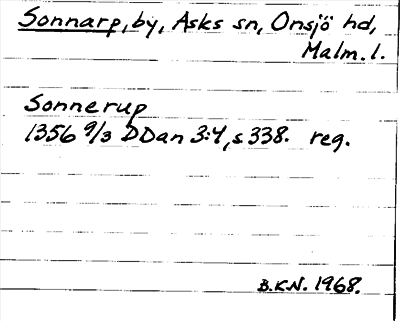 Sonnarp, by, Asks sn, Onsjö hd,
Malm. l.
Sonnerup
1356 9/3 DDan 3:4, s 338. reg.
B.K.N. 1968.